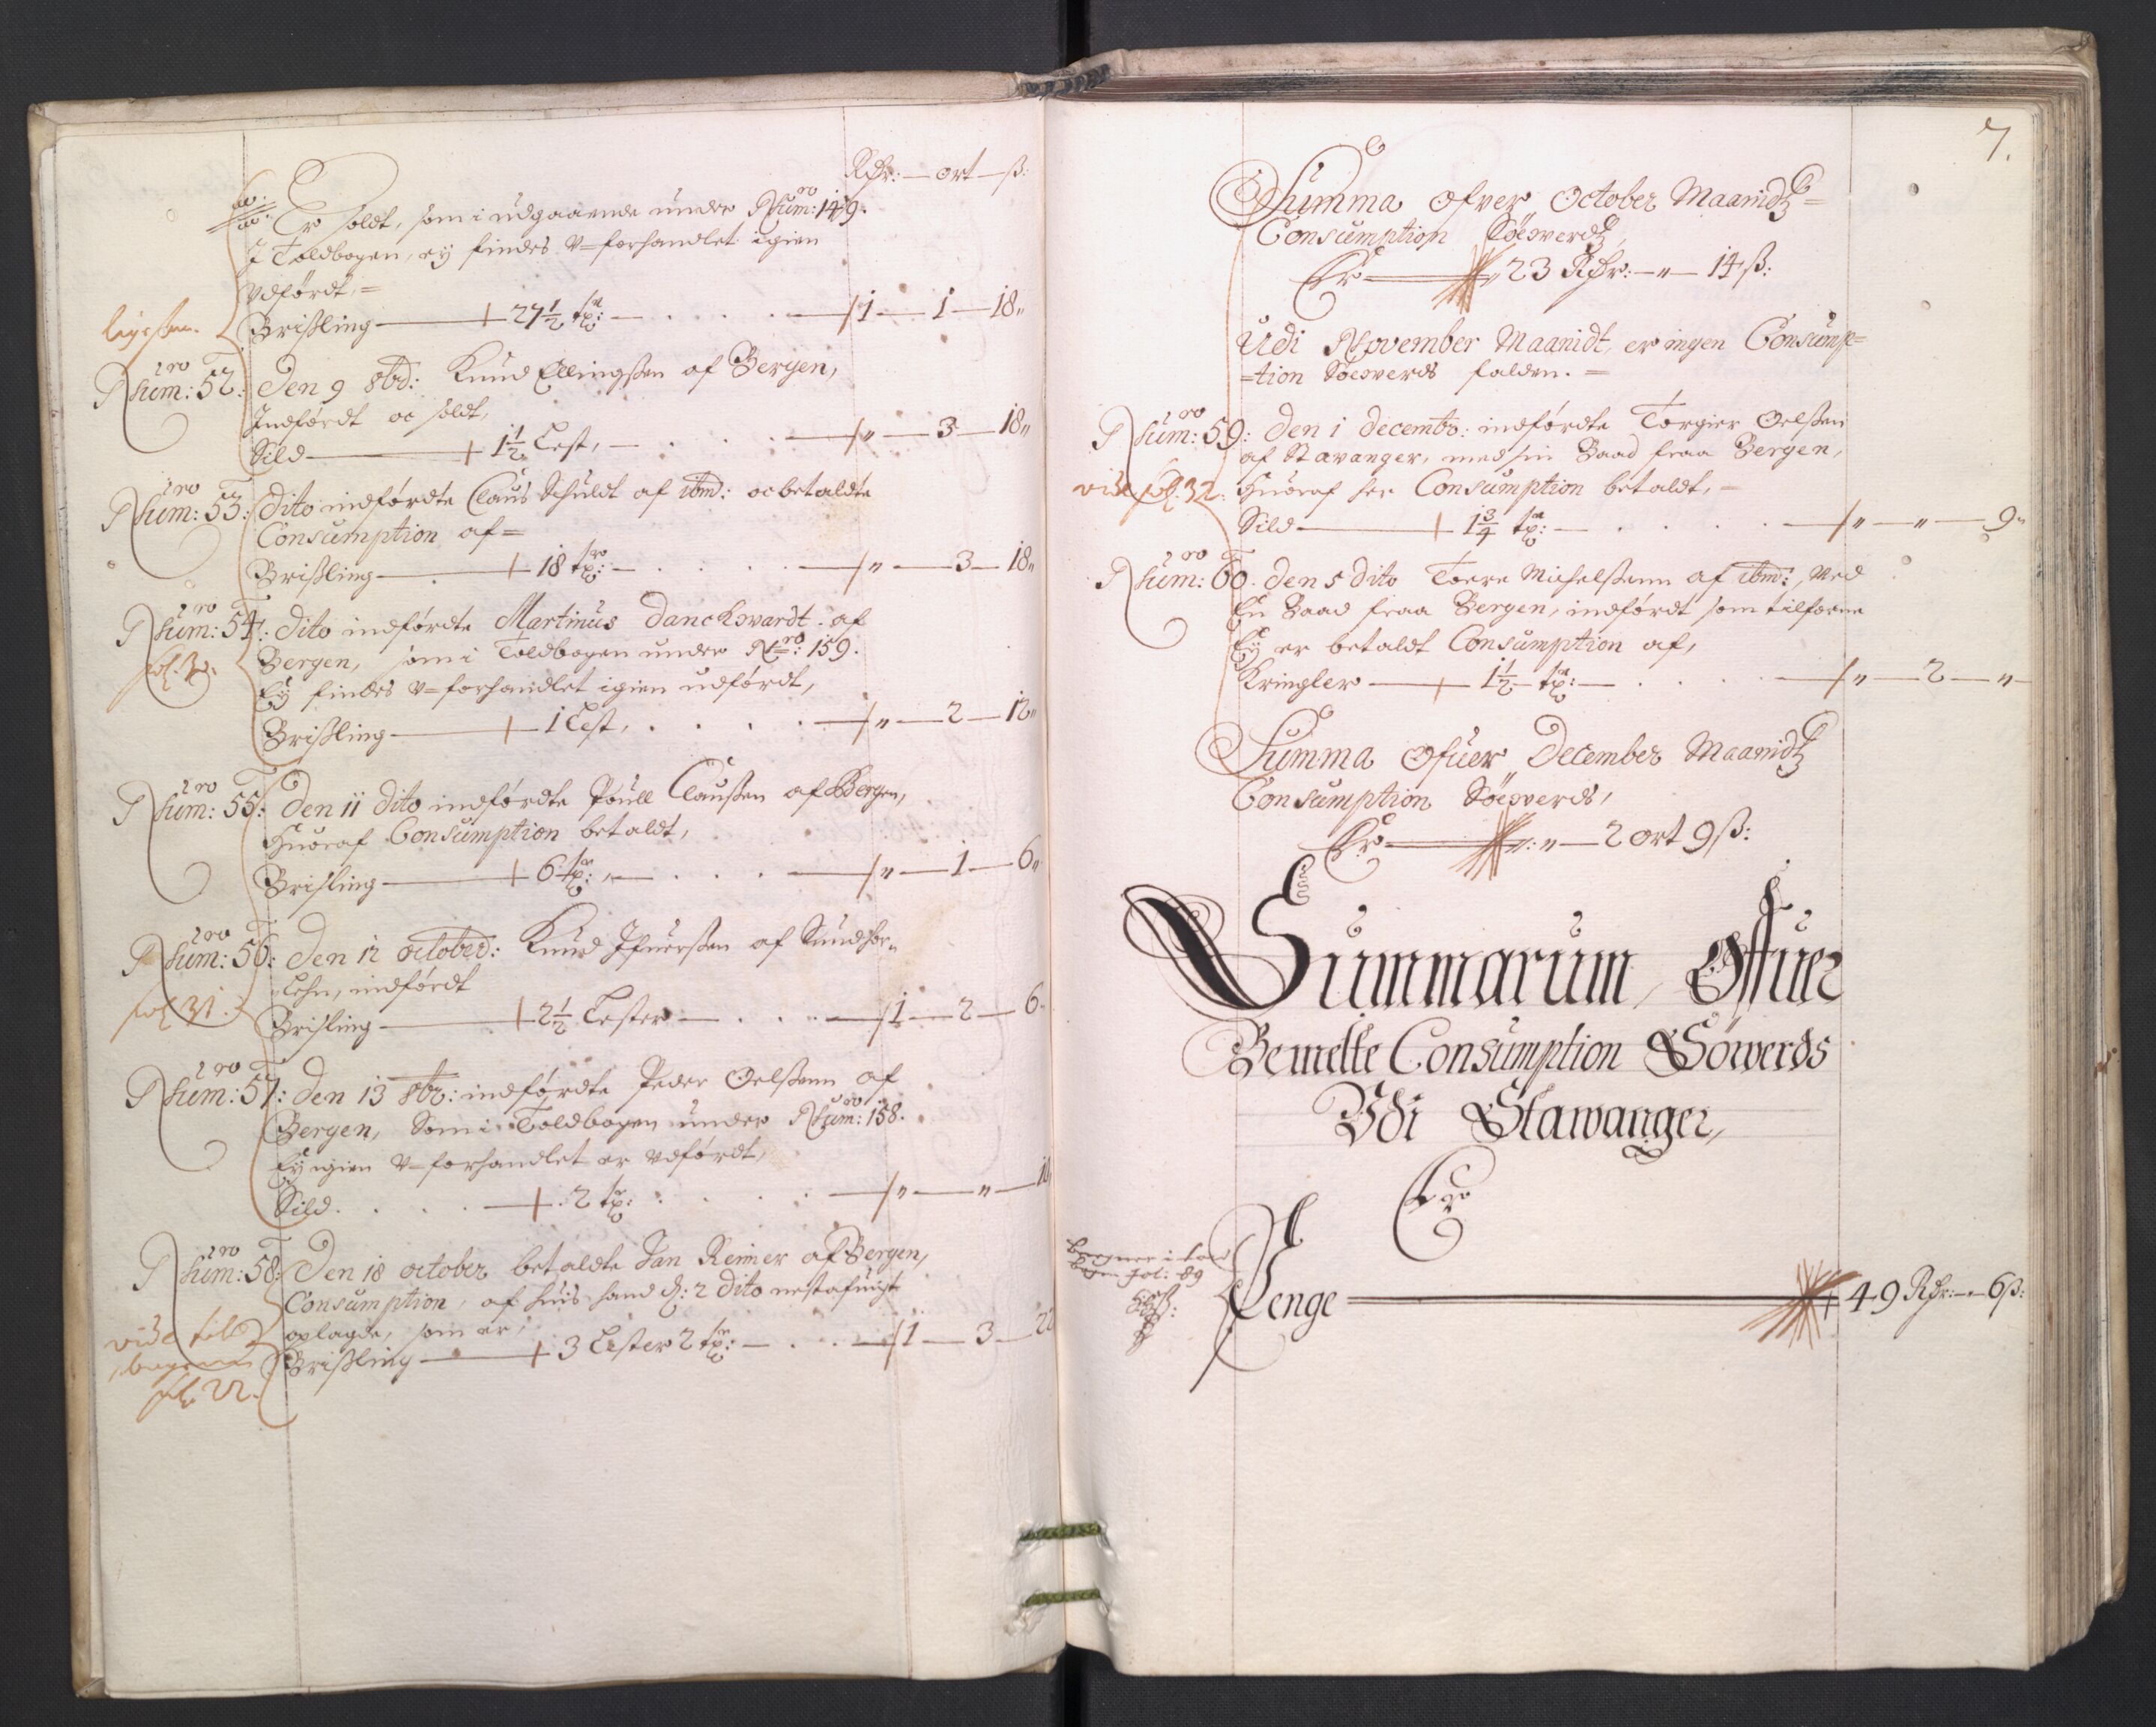 Rdr: — ort — ß:
Er soldt, som i udgaaende under Num:ro 149.
J Toldbogen, ey findes v=forhandlet igien
Vdfördt, =
Brißling — 27½ tr: — 1 — 1 — 18"
Num:ro 52: Den 9 8bd: Knud Ellingßen af Bergen,
Indfördt oc soldt,
Sild — 1½ Lest, — " — 3 — 18"
Num:ro 53: Dito indfördte Claus Schuldt af ibm: oc betaldte
Consumption af =
Brißling — 18 tr: — " — 3 — 18"
Num:ro 54: Dito indfördte Martinus Danckwardt af
Bergen, som i Toldbogen under Nro: 159.
Ey findes v=forhandlet igien udfördt,
Brißling — 1 Lest, " — 2 — 12"
Num:ro 55: Den 11 Dito indfördte Poull Claußen af Bergen,
Huoraf Consumption betaldt,
Brisling — 6 tr: — " — 1 — 6"
Num:ro 56: Den 12 october: Knud Ifuerßen af Sundhor=
Lehn, indfördt
fol 31.
Brisling — 2½ Lester — 1 — 2 — 6"
Num:ro 57: Den 13 8br: indfördte Peder Oelßenn af
Bergen, Som i Toldbogen under Num:ro 158.
Ey igien v=forhandlet er vdfördt,
Sild. — 2 tr: — " — "
Num:ro 58: Den 18 october betaldte Jan Reimer af Bergen,
Consumption, af huis hand d: 2 Dito nestafuigt
oplagde, som er,
vide told
bogenn
fol. 22.
Brißling — 3 Lester 2 tr: — 1 — 3 — 22
7.
Summa Ofver October Maanidtz
Consumption Söeverdtz,
Er — 23 Rdr: — " — 14 ß:
Udi November Maanidt, er ingen Consump=
=tion Söeverds falden. =
Num:ro 59: Den 1 decembr: indfördte Torgier Oelßen
af Stavanger, med sin Baad fraa Bergen,
vide fol. 32. Huoraf her Consumption betaldt, —
Sild — 1¾ tr: — " — " — 9"
Num:ro 60. Den 5 Dito Toere Michelßenn af ibm:, Med
En Baad fraa Bergen, indfördt som tilforne
Ey er betaldt Consumption af,
Kringler — 1½ tr: — " — 2 — "
Summa Ofuer December Maanidtz
Consumption Söeverds,
Er — " — 2 ort 9 ß:
Summarum, Offuer
Bemelte Consumption Söwerds
Vdi Stawanger,
Er
fol: 89
Penge — 49 Rdr: — " 6 ß: